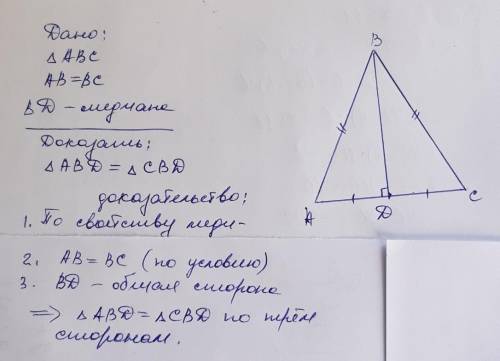 Дано:
△ ABC
AB = BC
BD – медиана
Доказать:
△ ABD = △ CBD
доказательство:
1. По свойству меди-
2. AB = BC (по условию)
3. BD – общая сторона
⇒ △ ABD = △ CBD по трём
сторонам.
B
A
D
C